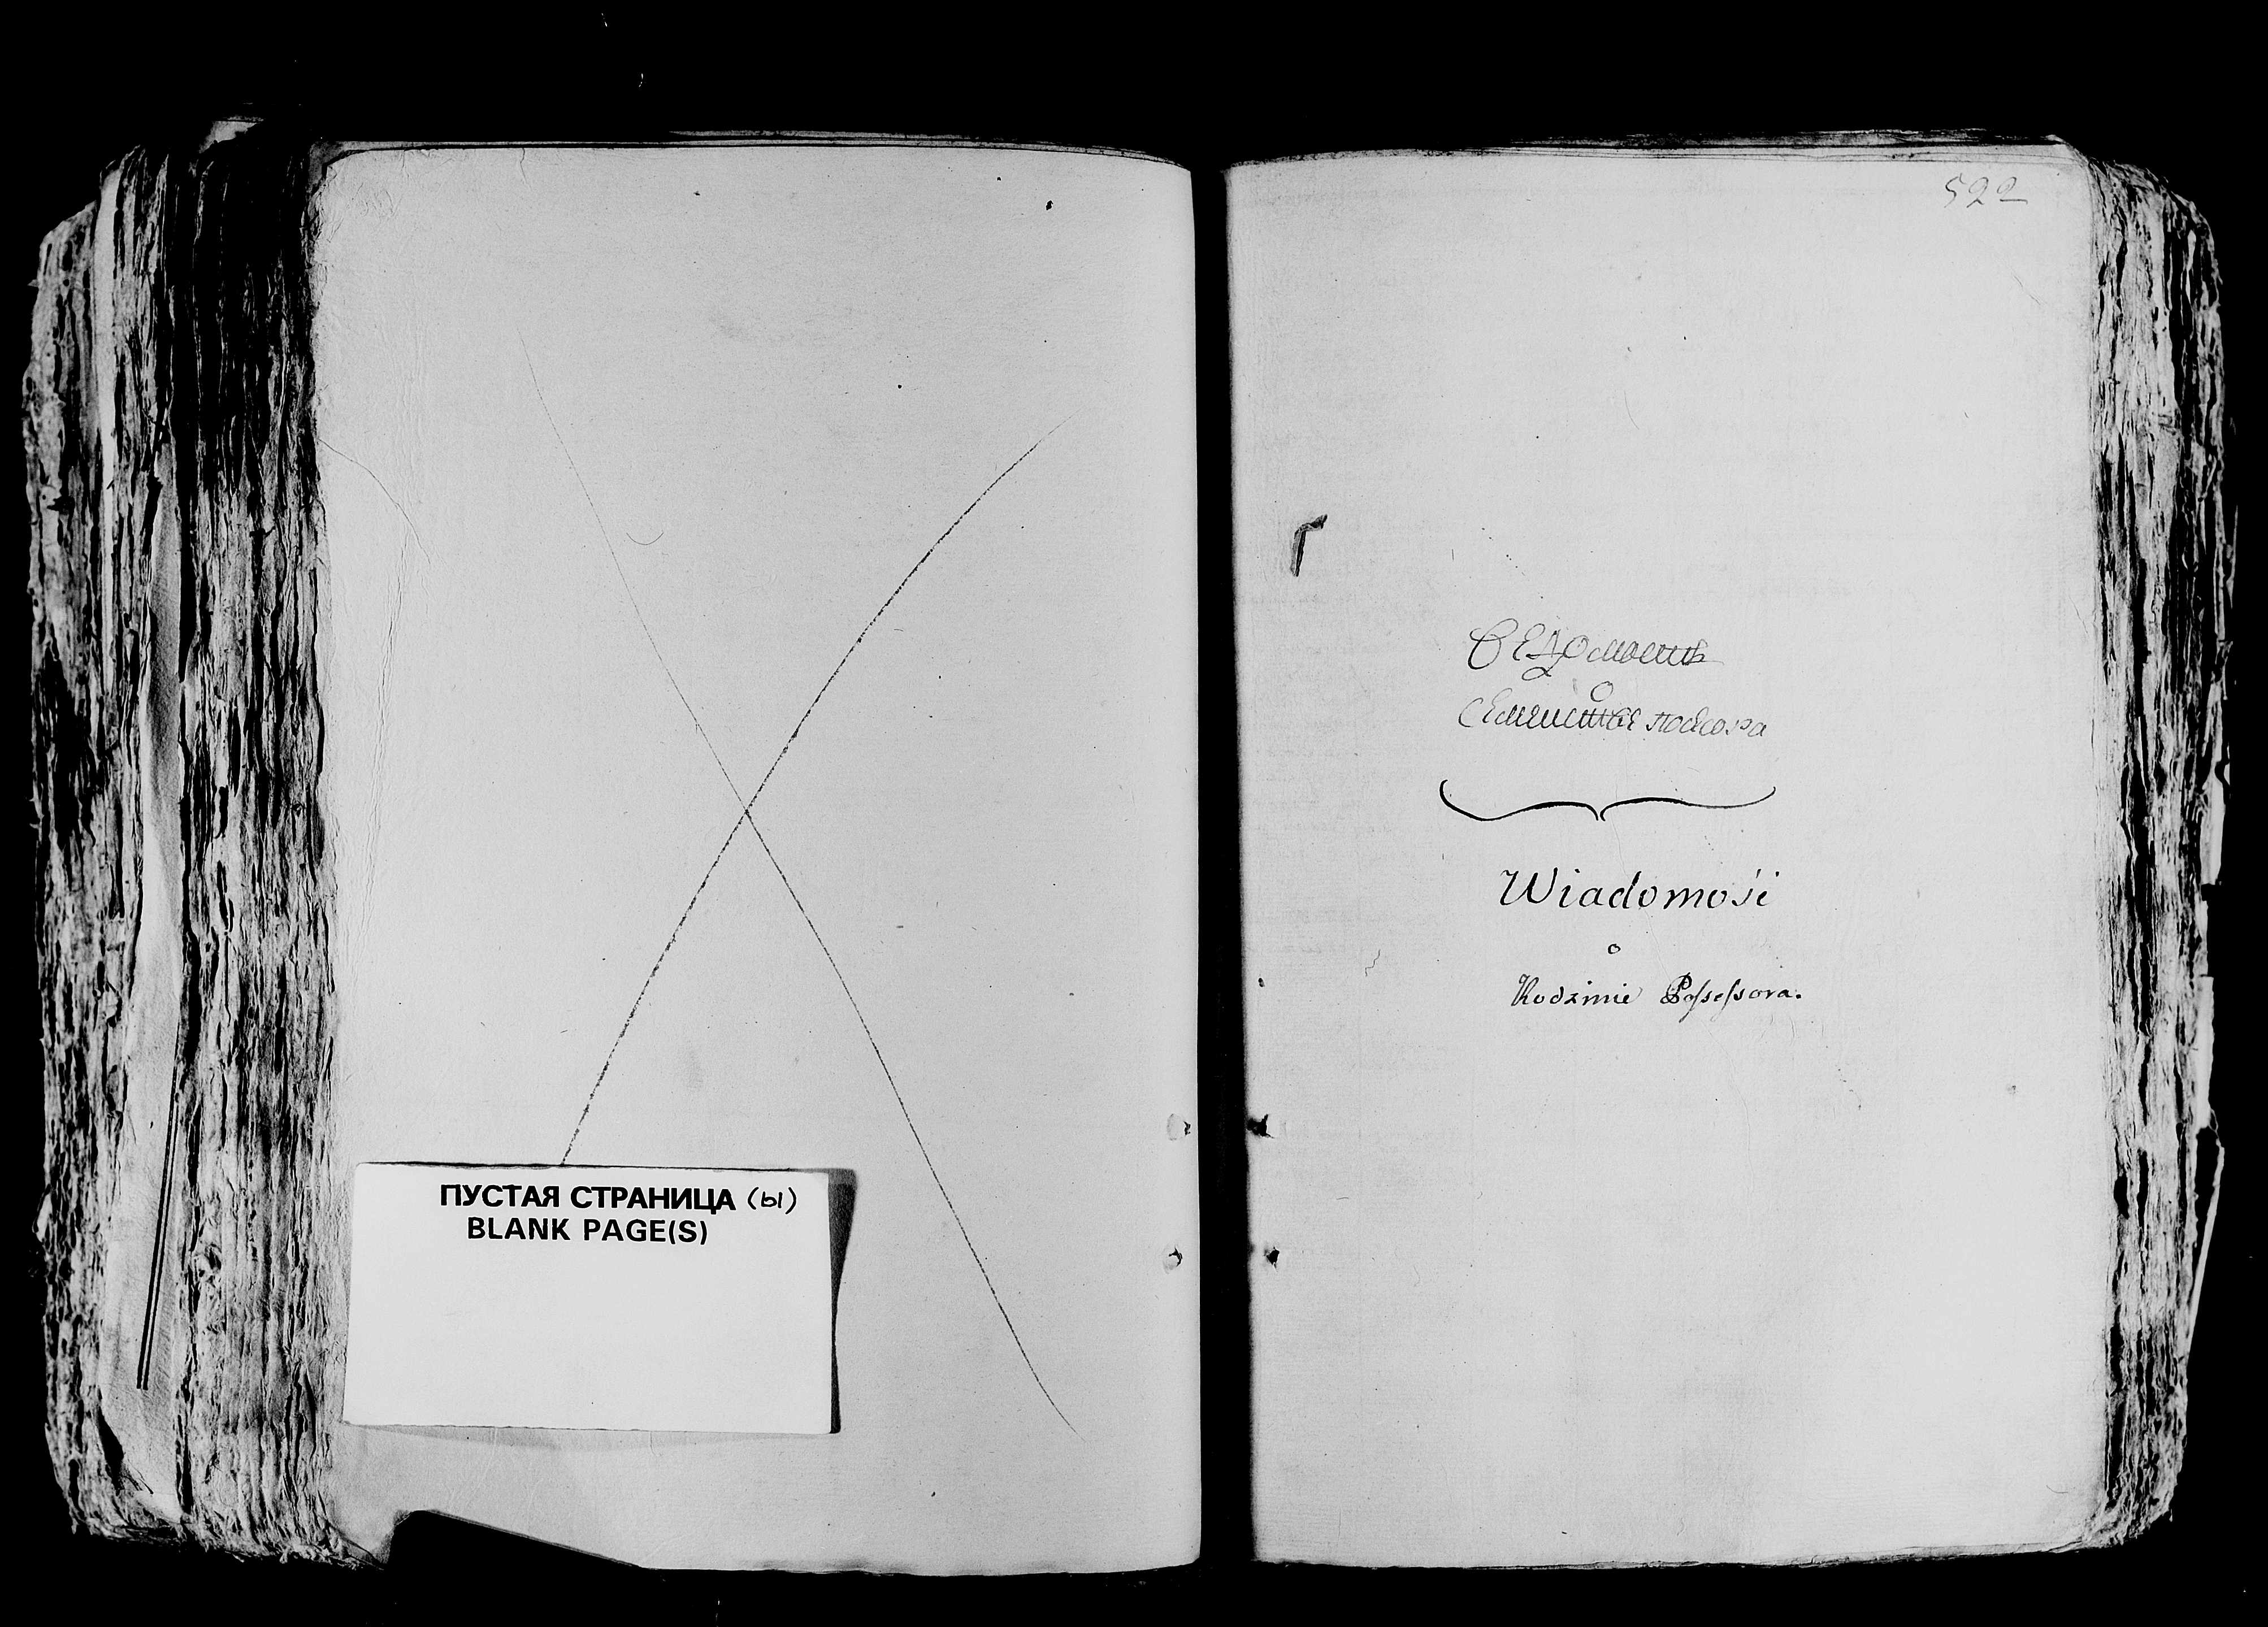 ПУСТАЯ СТРАНИЦА (ы)
BLANK PAGE(S)
522
Ведомость
о
Семействе
Wiadomość
o
Rodzinie Possessora.